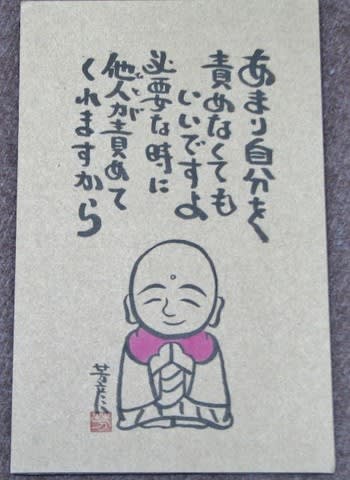 あまり自分を
責めなくても
いいですよ
必要な時に
他人が責めて
ひと
くれますから